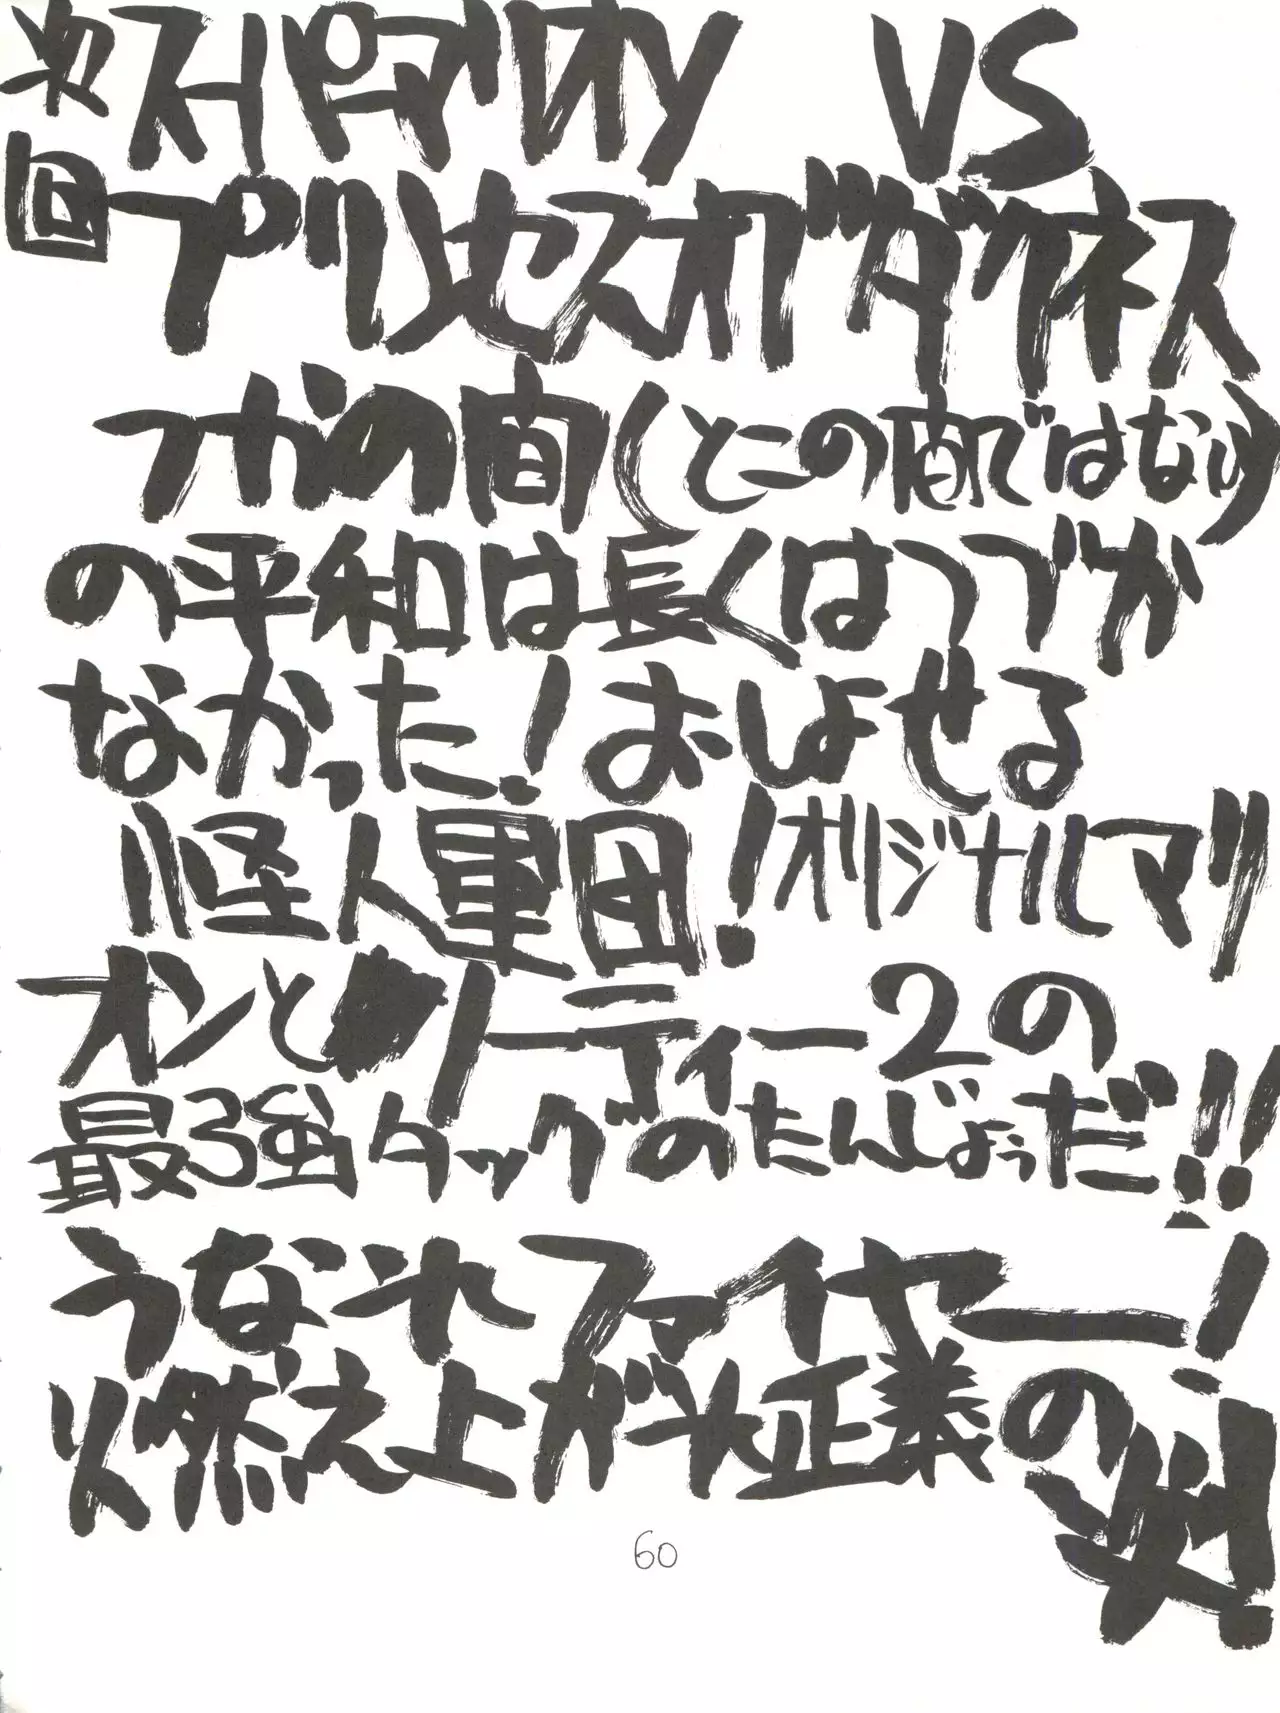 次回 スーパーマリオン VS
プリンセスオブダークネス
つかの間(とこの間ではない)
の平和は長くはつづか
なかった!おしよせる
怪人軍団!オリジナルマリ
オンと リーティー2の
最強タッグのたんじょうだ!!
うなれファイヤー!
燃え上がれ正義の炎!
60